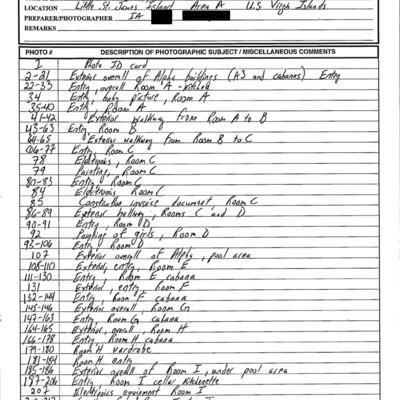 LOCATION Little St. James Island Area A U.S Virgin Islands
PREPARER/PHOTOGRAPHER IA
REMARKS
PHOTO # DESCRIPTION OF PHOTOGRAPHIC SUBJECT / MISCELLANEOUS COMMENTS
1 Photo ID card
2-21 Exterior overall of Alpha buildings (A3 and cabanas) Entry
22-33 Entry, overall Room A - kitchen
34 Entry, baby picture, Room A
35-40 Entry, Room A
41-42 Exterior walkway from Room A to B
43-63 Entry Room B
64-65 Exterior walkway from Room B to C
66-77 Entry, Room C
78 Electronics, Room C
79 Painting, Room C
80-83 Entry, Room C
84 Electronics, Room C
85 Construction invoice document, Room C
86-89 Exterior hallway, Rooms C and D
90-91 Entry, Room D
92 Painting of girls, Room D
93-106 Entry, Room D
107 Exterior overall of Alpha, pool area
108-110 Exterior, entry, Room E
111-130 Entry, Room E cabana
131 Exterior, entry, Room F
132-144 Entry, Room F cabana
145-146 Exterior overall, Room G
147-163 Entry, Room G cabana
164-165 Exterior, overall, Room H
166-178 Entry, Room H cabana
179-180 Room H wardrobe
181-184 Room H entry
185-186 Exterior overall of Room I, under pool area
187-206 Entry, Room I cellar kitchenette
207 Electronics equipment Room I